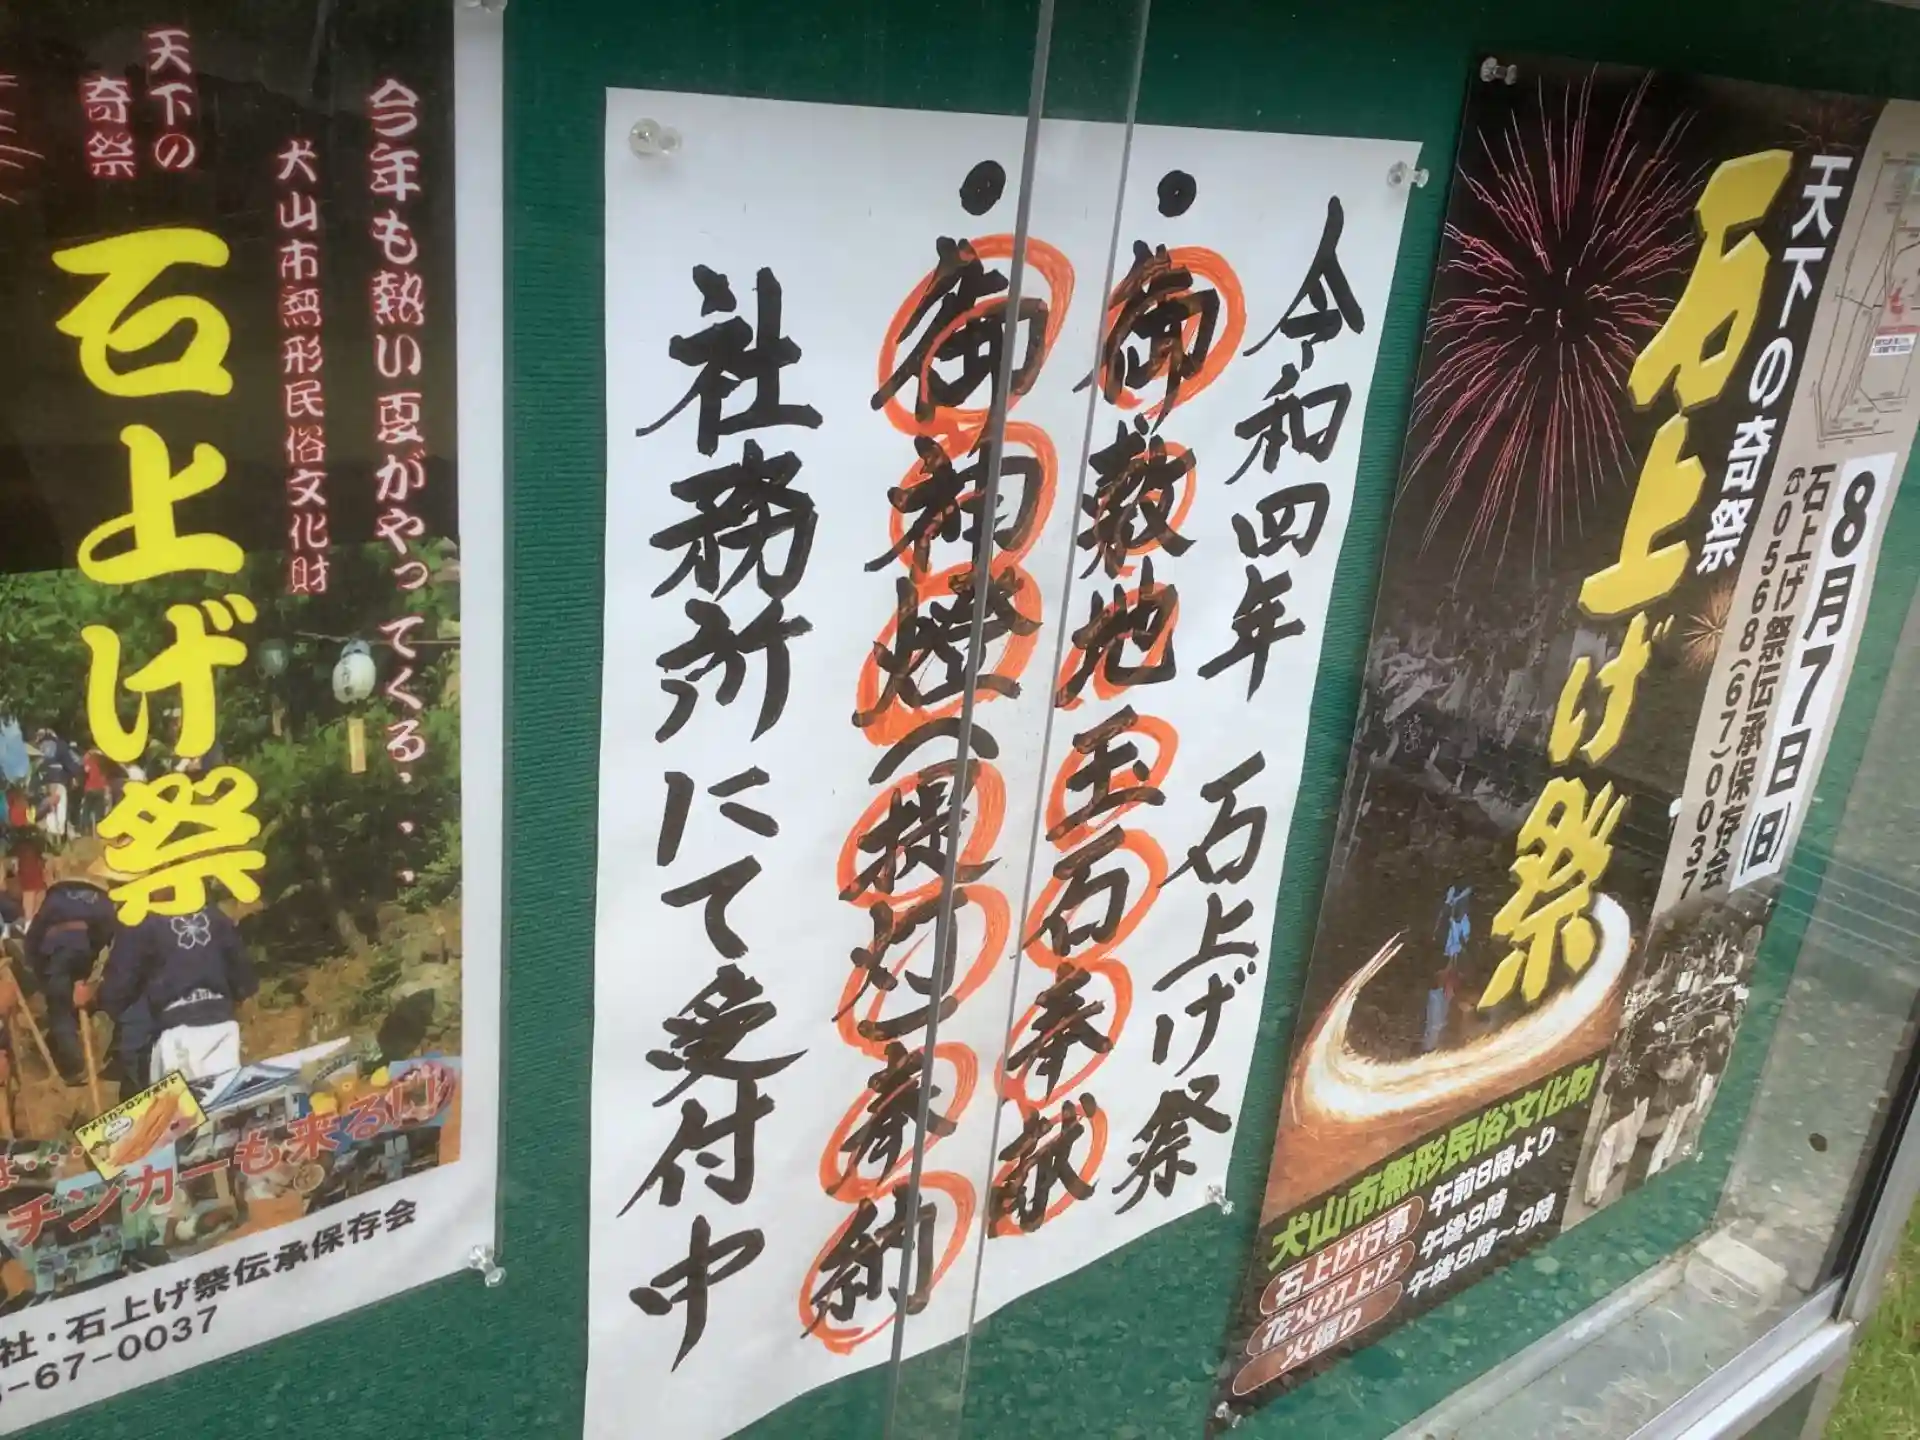 天下の
奇祭
石上げ祭
今年も熱い夏がやってくる、、、
犬山市無形民俗文化財
アメリカンロングポテト
チンカーも来る!!
社・石上げ祭伝承保存会
-67-0037
令和四年 石上げ祭
・御敷地玉石奉献
・御神燈(提灯)奉納
社務所にて受付中
天下の奇祭
石上げ祭
8月7日(日)
石上げ祭伝承保存会
☎0568(67)0037
犬山市無形民俗文化財
石上げ行事 午前8時より
花火打上げ 午後8時
火振り 午後8時〜9時